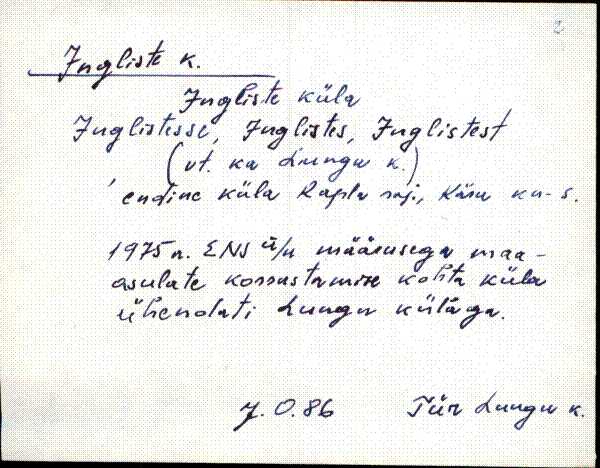 2
Ingliste k.
Ingliste küla
Inglistesse, Inglistes, Inglistest
(vt. ka Lungu k.)
endine küla Rapla raj., Käru kn-s.
1975 a. ENSV ü/n määrusega maa-
asulate korrastamise kohta küla
ühendati Lungu külaga.
J. O. 86 Tür Lungu k.